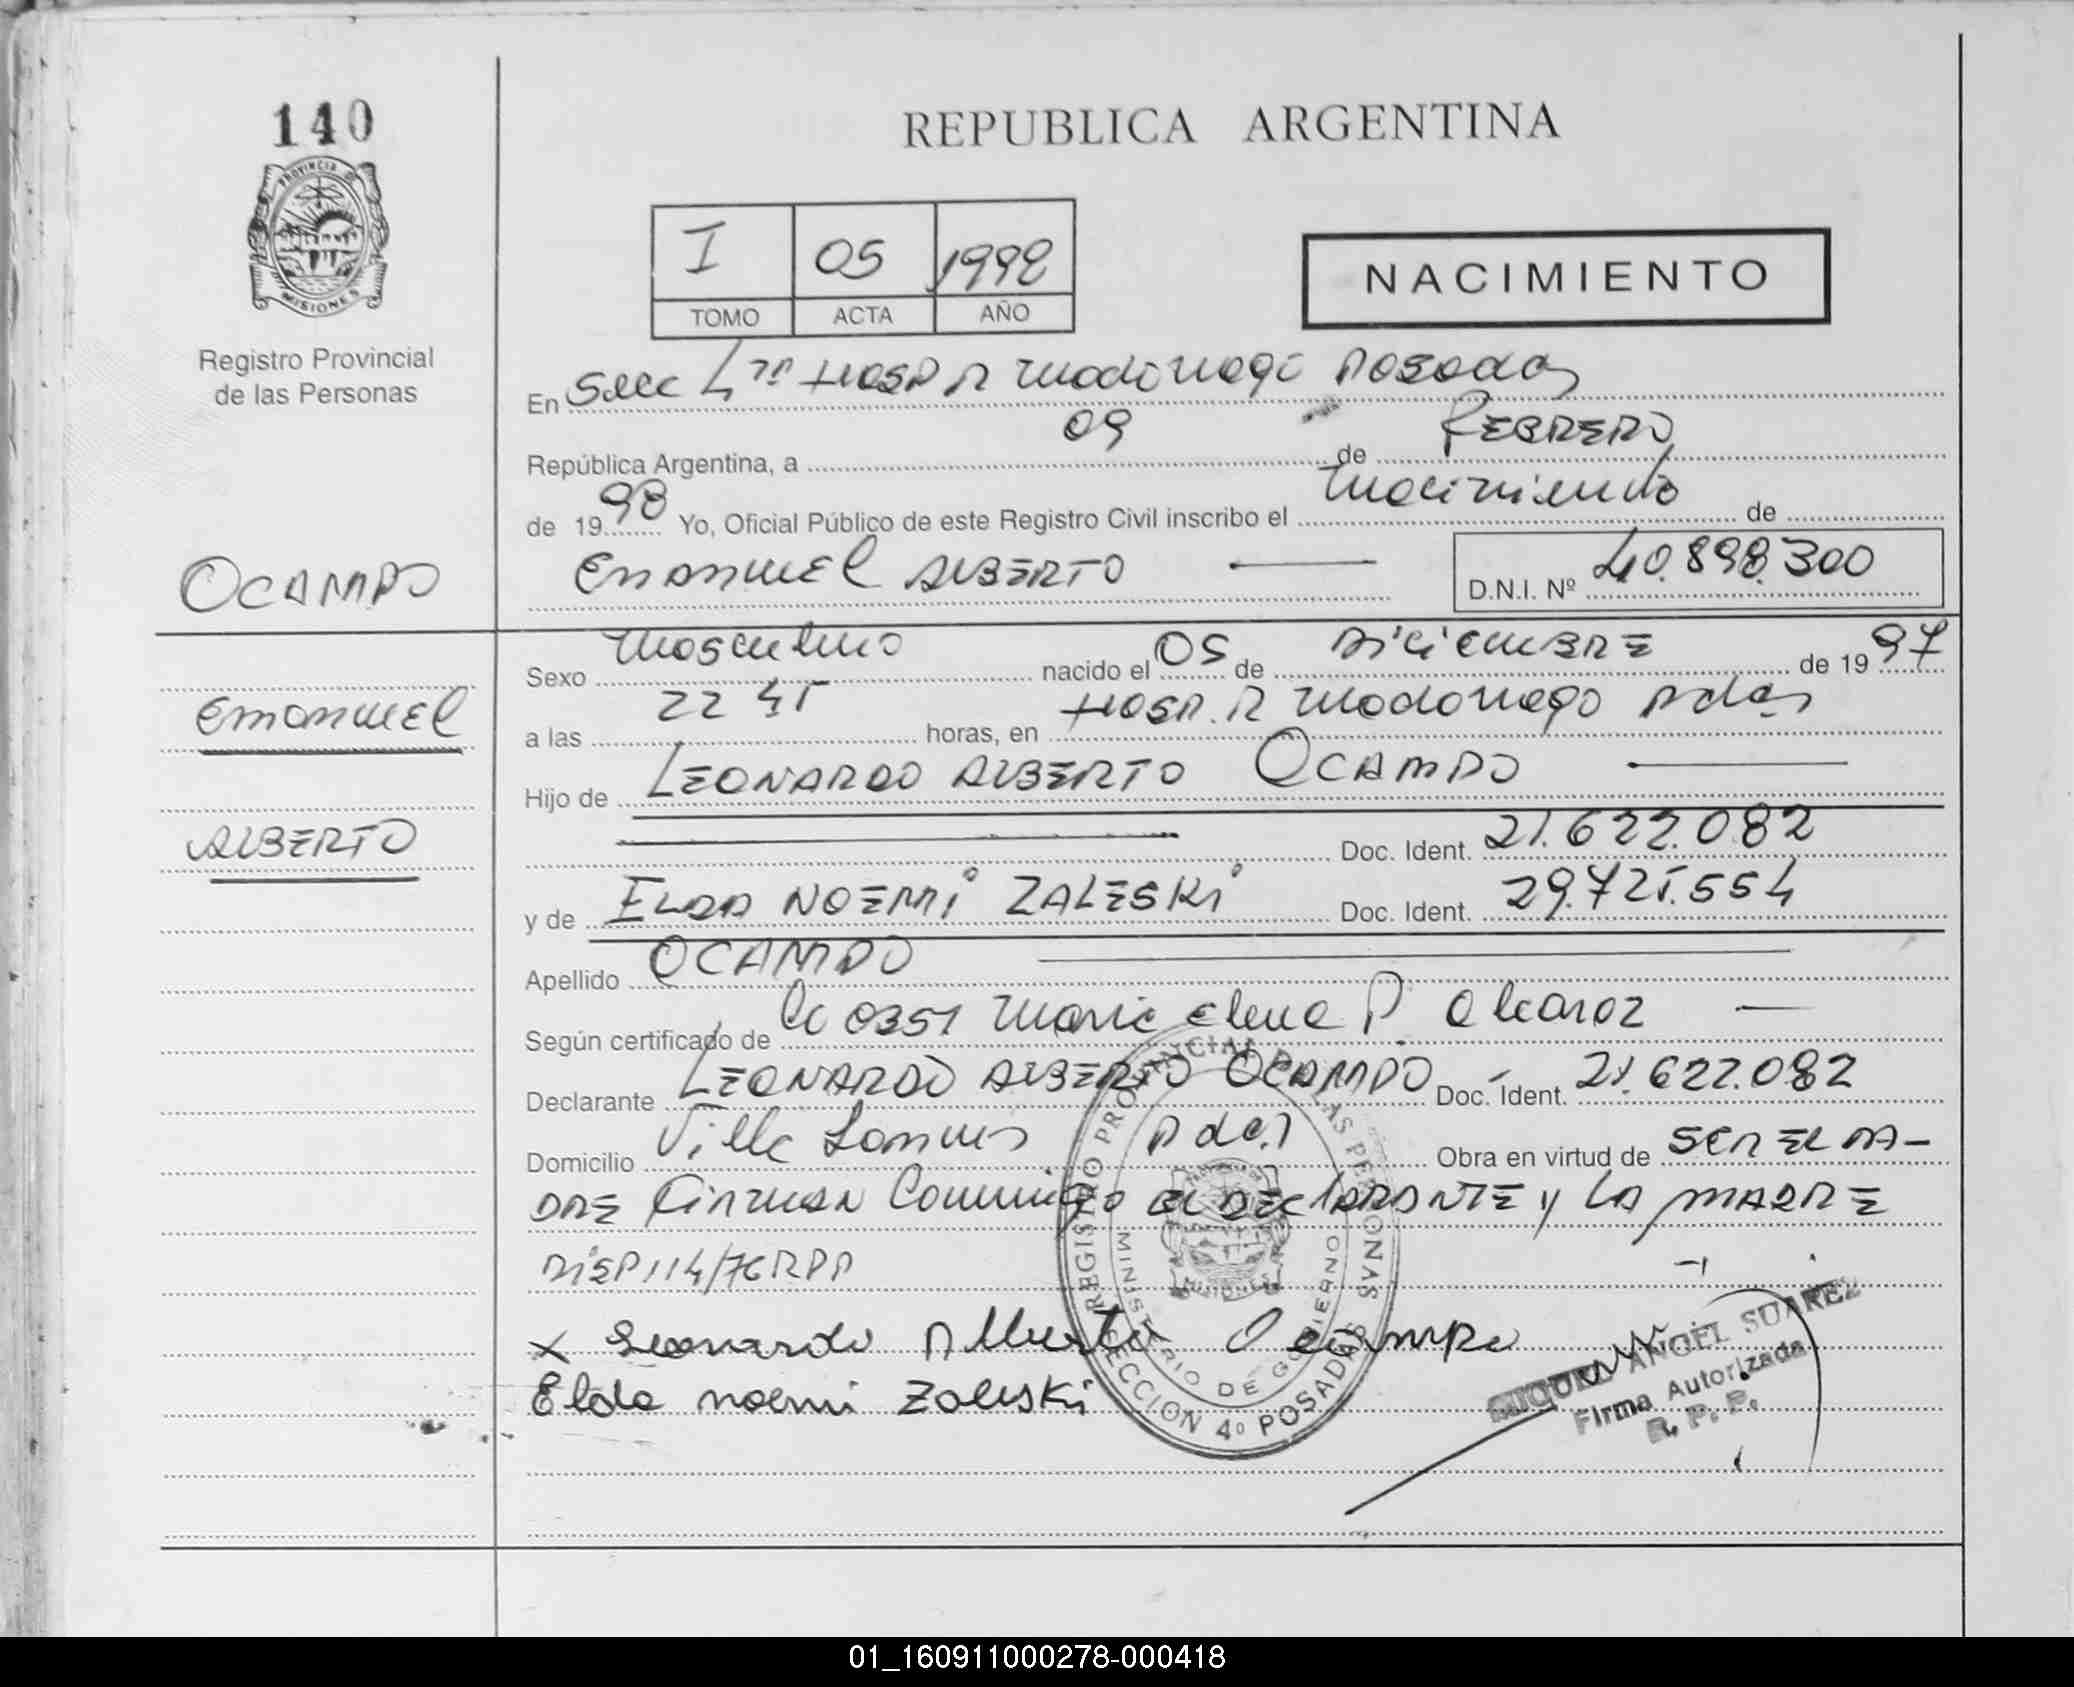 140
PROVINCIA DE
MISIONES
Registro Provincial
de las Personas
REPUBLICA ARGENTINA
I 05 1998
TOMO ACTA AÑO
NACIMIENTO
En Secc 4ta Hosp R Madariaga Posadas
República Argentina, a 09 de FEBRERO
de 1998 Yo, Oficial Público de este Registro Civil inscribo el nacimiento de
OCAMPO
Emanuel ALBERTO D.N.I. Nº 40.898.300
Sexo masculino nacido el 05 de DiciEMBRE de 1997
Emanuel
a las 22 45 horas, en Hosp. R Madariaga Pdas
Hijo de LEONARDO ALBERTO OCAMPO
ALBERTO
Doc. Ident. 21.622.082
y de ELDA NOEMí ZALESKi Doc. Ident. 29.725.554
Apellido OCAMPO
Según certificado de 0351 Maria Elena P. Alcaroz
Declarante LEONARDO ALBERTO OCAMPO Doc. Ident. 21.622.082
Domicilio Villa Lanus Pdas Obra en virtud de SER EL PA-
DRE Firman Conmigo EL DECLARANTE y LA MADRE
DISP 114/76 RPP
x Leonardo Alberto Ocampo
Elda noemi Zaleski
REGISTRO PROVINCIAL DE LAS PERSONAS
MINISTERIO DE GOBIERNO
SECCION 4º POSADAS
MIGUEL ANGEL SUAREZ
Firma Autorizada
R. P. P.
01_160911000278-000418